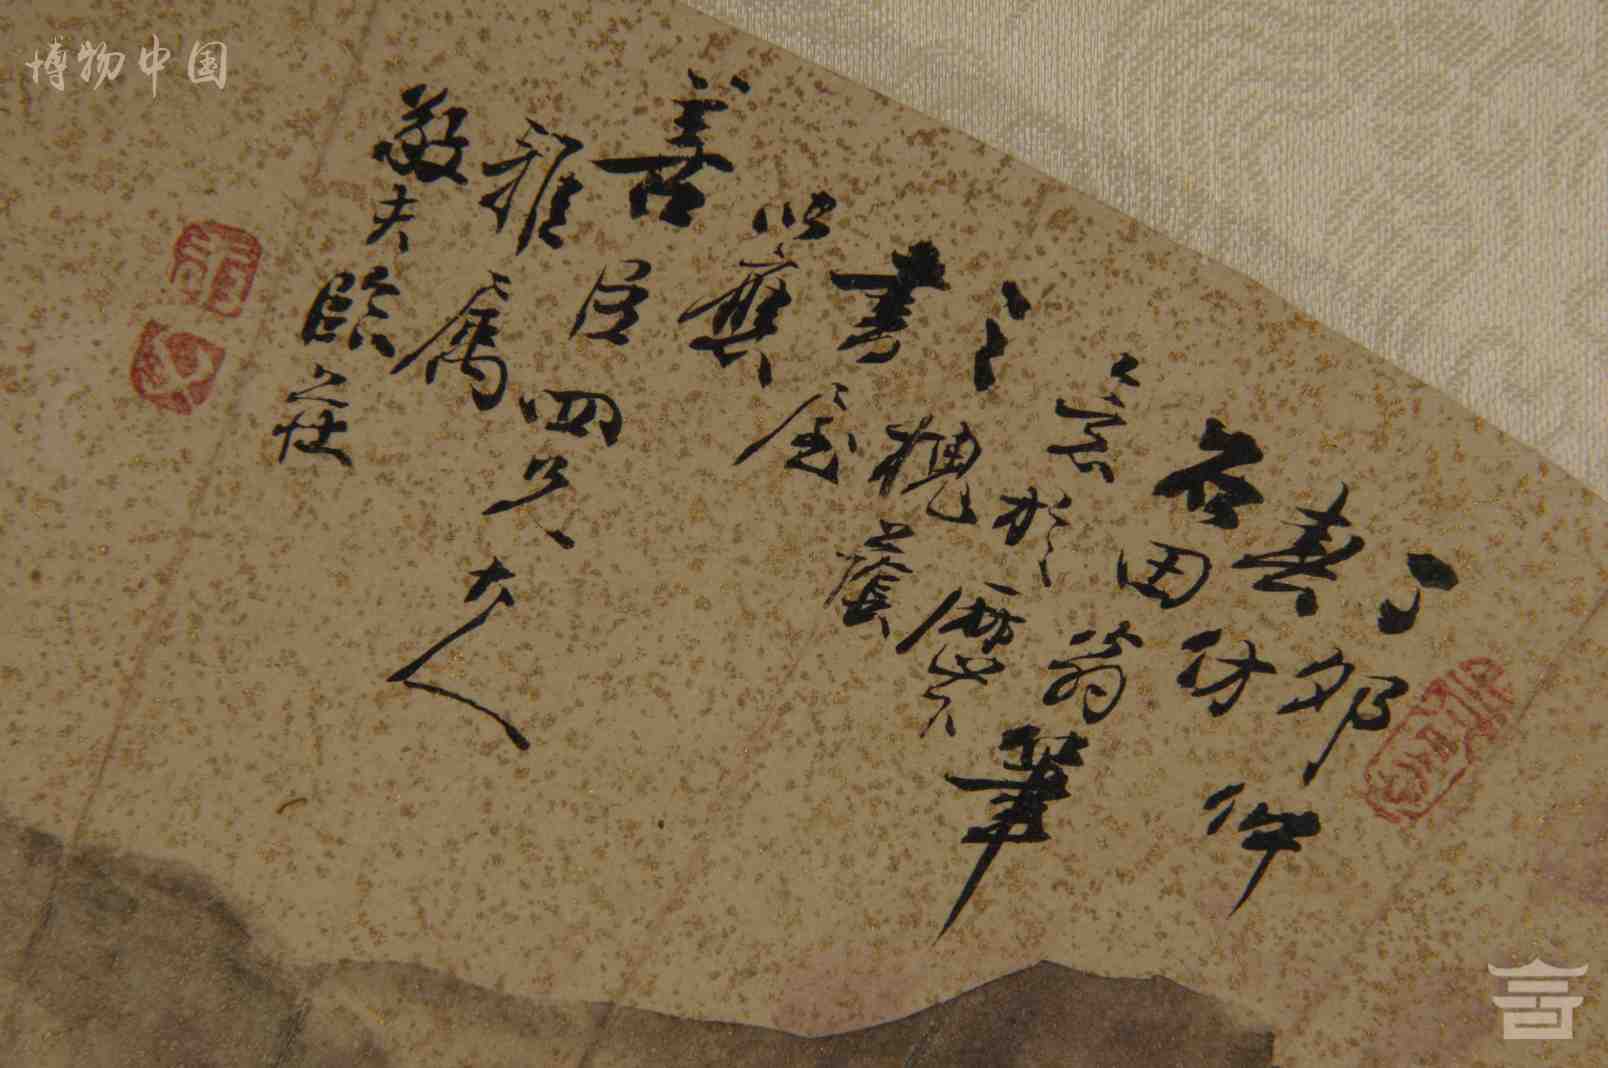 博物中国
丁卯仲
春仿
石田翁筆
意於歷下
之槐蔭
書屋
以應
善臣四兄大人
雅屬
敬夫臨莊